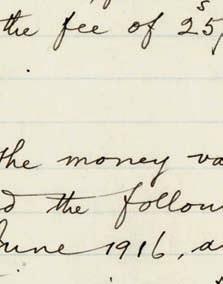 the fee of 25s/
the money va
d the follow
June 1916, a